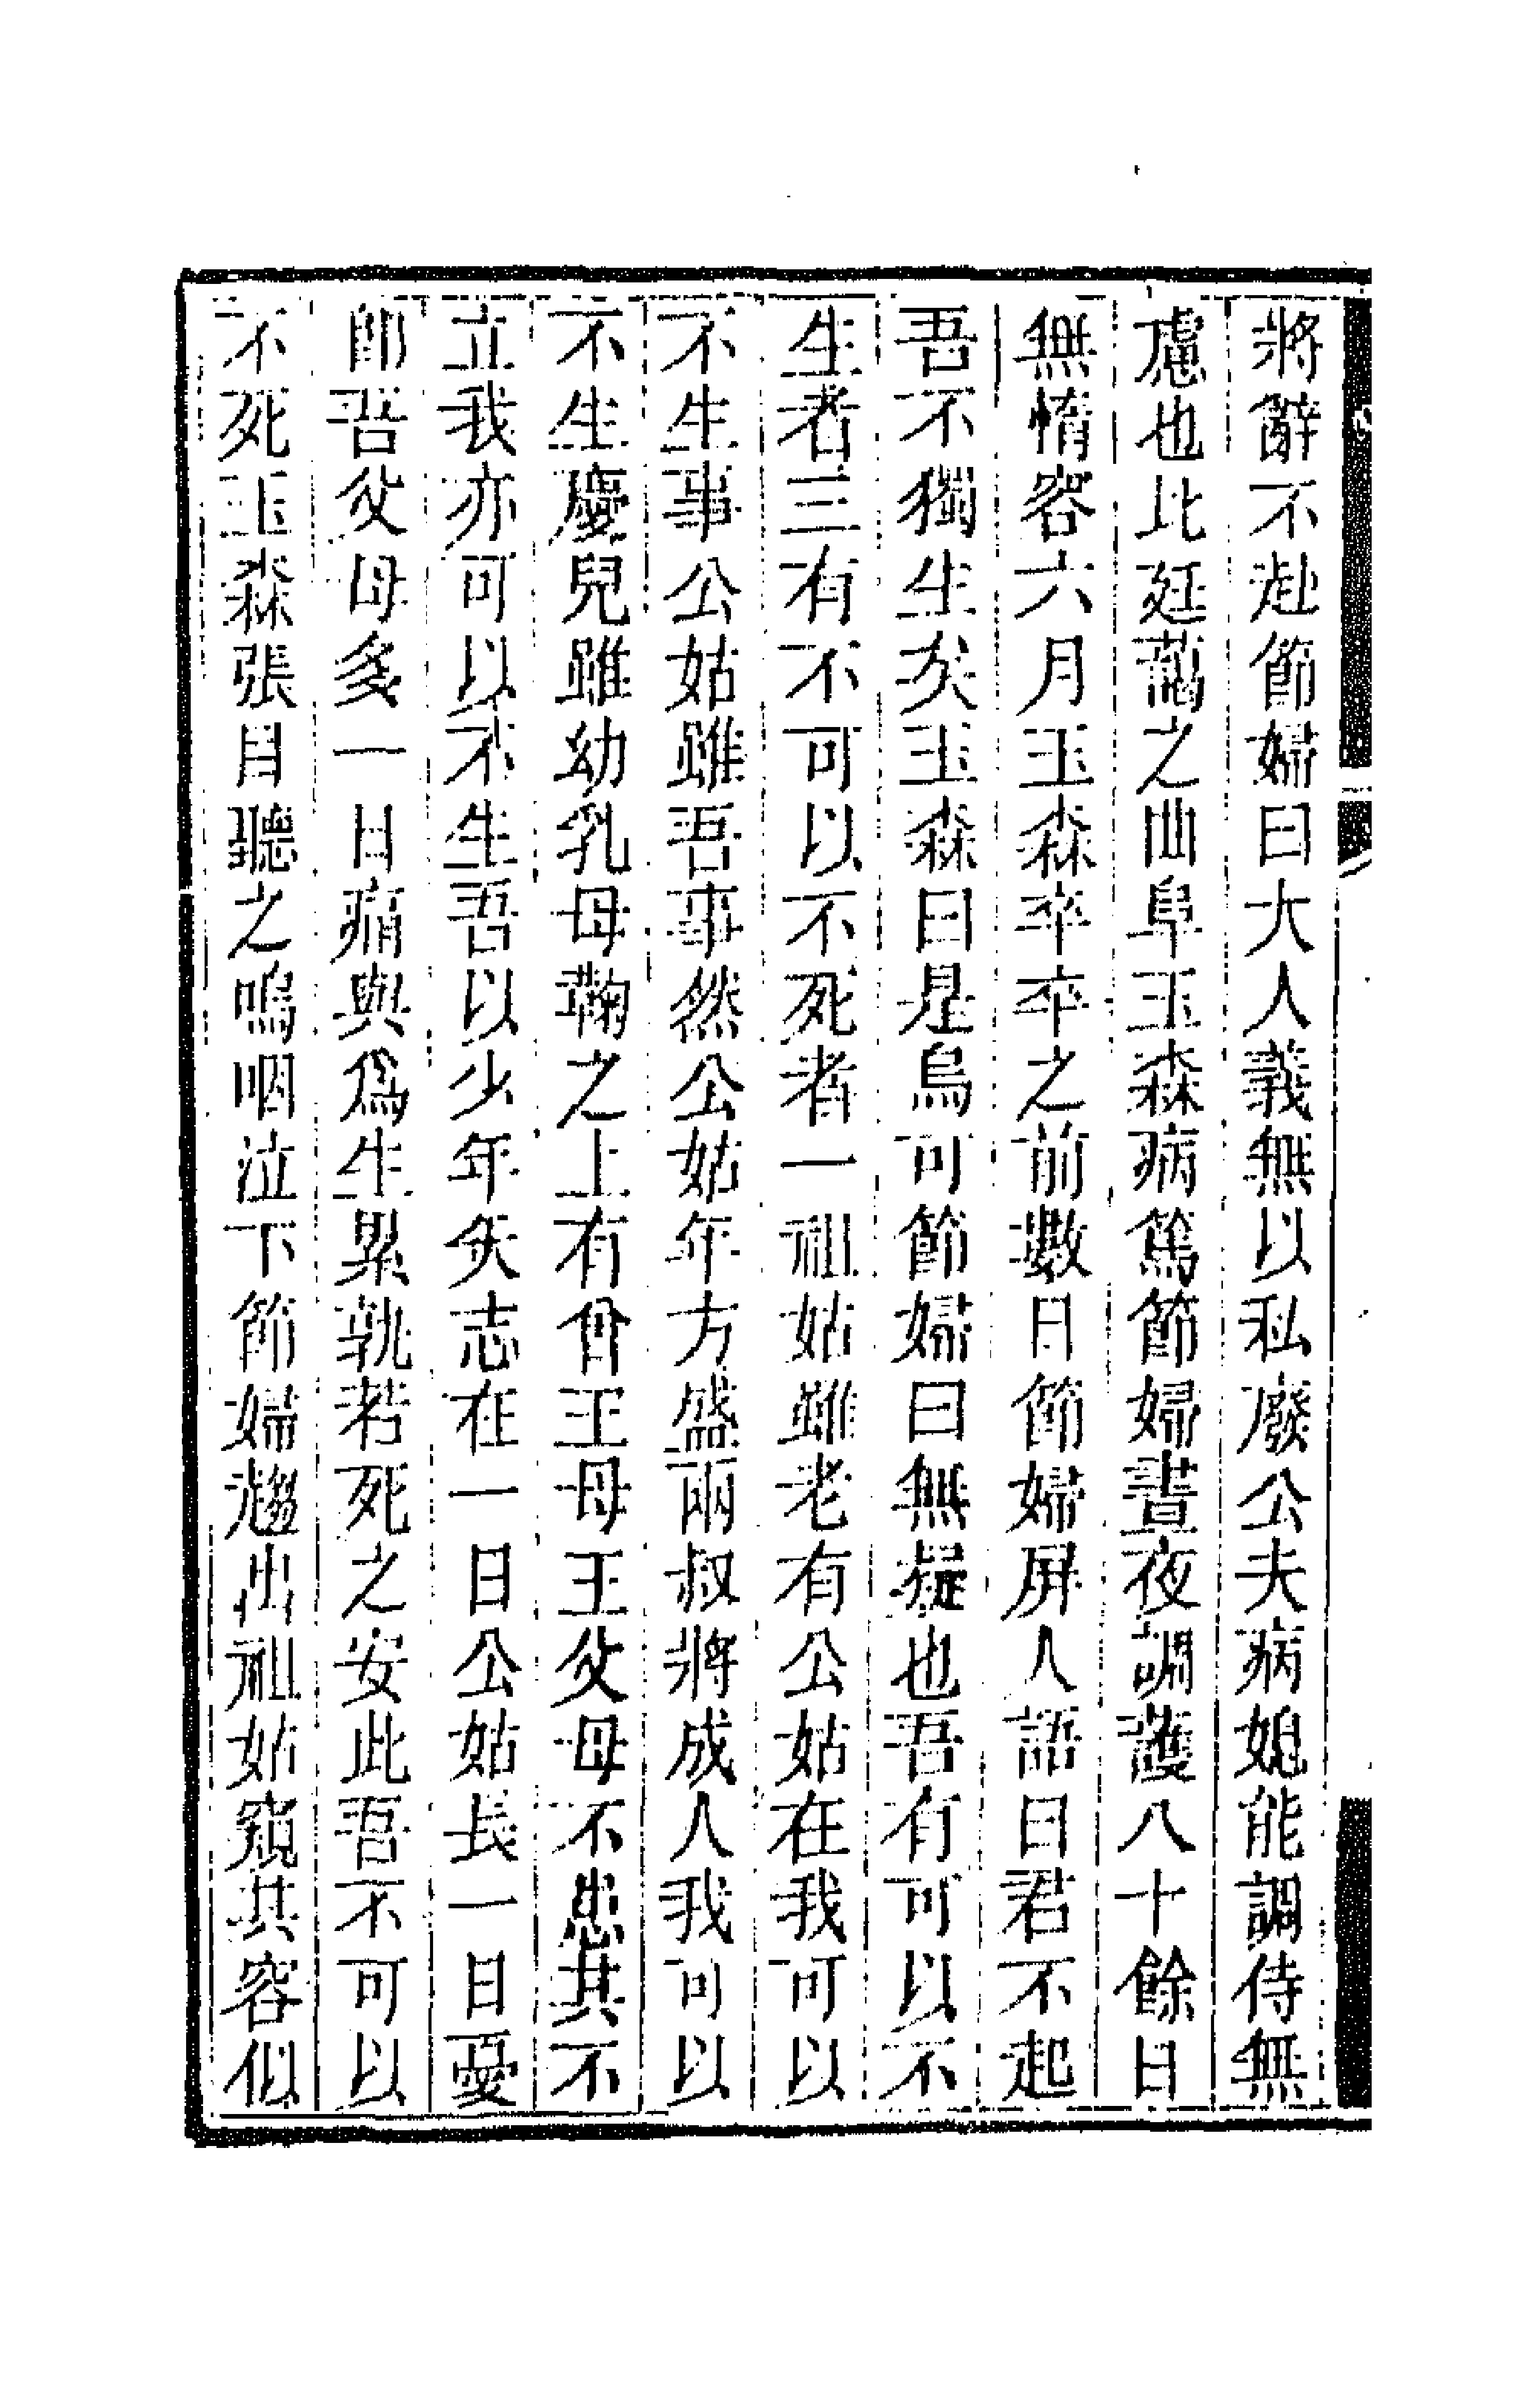 將辭不赴節婦曰大人義無以私廢公夫病媳能調侍無
慮也比廷藹之曲阜玉森病篤節婦晝夜調護八十餘日
無惰容六月玉森卒卒之前數日節婦屏人語曰君不起
吾不獨生矣玉森曰是烏可節婦曰無疑也吾有可以不
生者三有不可以不死者一祖姑雖老有公姑在我可以
不生事公姑雖吾事然公姑年方盛兩叔將成人我可以
不生慶兒雖幼乳母鞠之上有曾王母王父母不患其不
立我亦可以不生吾以少年矢志在一日公姑長一日憂
卽吾父母多一日痛與爲生累孰若死之安此吾不可以
不死玉森張目聽之嗚咽泣下節婦趨出祖姑窺其容似